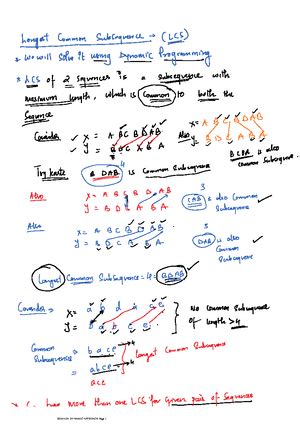 Longest Common Subsequence → (LCS)
* We will solve it using Dynamic Programming
* LCS of 2 sequences is a subsequence with
maximum length, which is common to both the
sequence
Consider X = A B C B D A B Also X = A B C B D A B
Y = B D C A B A Y = B D C A B A
BCBA is also
common Subsequence.
4
BDAB is Common Subsequence
Also X = A B C B D A B
Y = B D C A B A
3
CAB is also Common
Subsequence
Also X = A B C B D A B
Y = B D C A B A
3
DAB is also
Common
Subsequence
Longest Common Subsequence = 4 = BDAB
Consider → X = a b d c e
Y = b a b c e
No common Subsequence
of length > 4
Common → b a c e → 4
Subsequence = a b c e → 4
Longest Common Subsequence
a c e
more than one LCS for given pair of Sequences